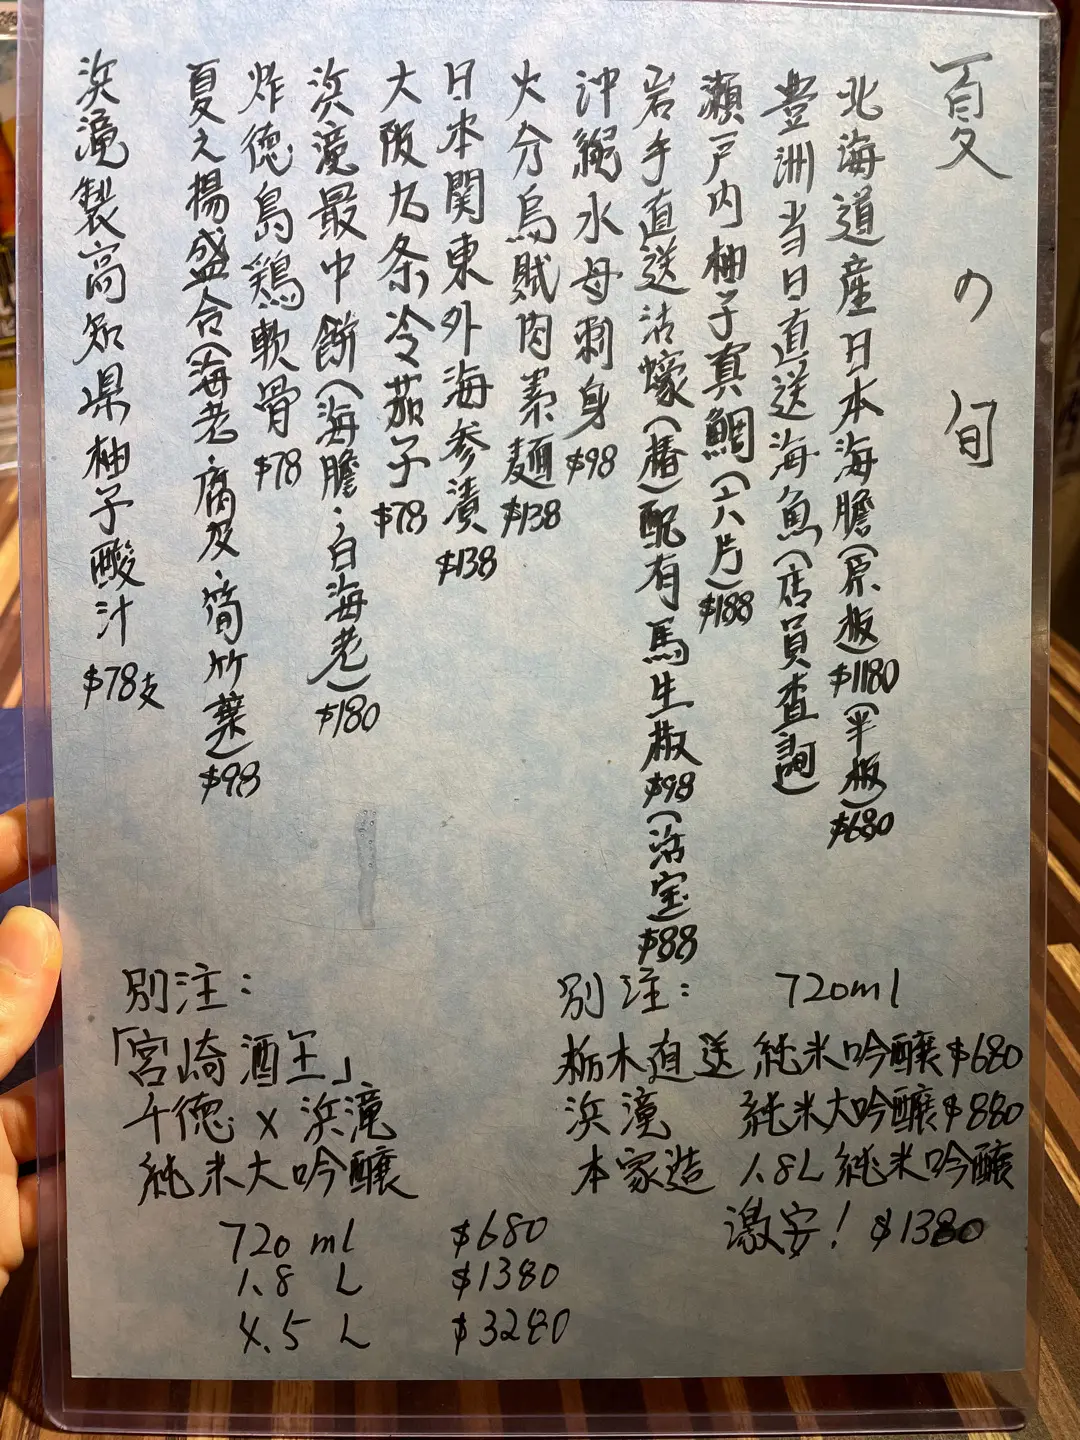 夏の旬
北海道産日本海膽(原板)$1180(半板)$680
豊洲当日直送海魚(店員查詢)
瀬戸内柚子真鯛(六片)$188
岩手直送活蠔(樁)配有馬生椒$98(活宝)$88
沖縄水母刺身$98
大分烏賊肉素麺$138
日本関東外海参漬$138
大阪九条冷茄子$78
浜滝最中餅(海膽·白海老)$180
炸徳島鶏軟骨$78
夏之揚盛合(海老·腐皮·筒竹葉)$98
浜滝製高知県柚子酸汁$78支
別注: 720ml
栃木直送 純米吟醸$680
浜滝 純米大吟醸$880
本家造 1.8L純米吟醸
激安! $1380
別注:
「宮崎酒王」
千徳×浜滝
純米大吟醸
720ml $680
1.8L $1380
4.5L $3280